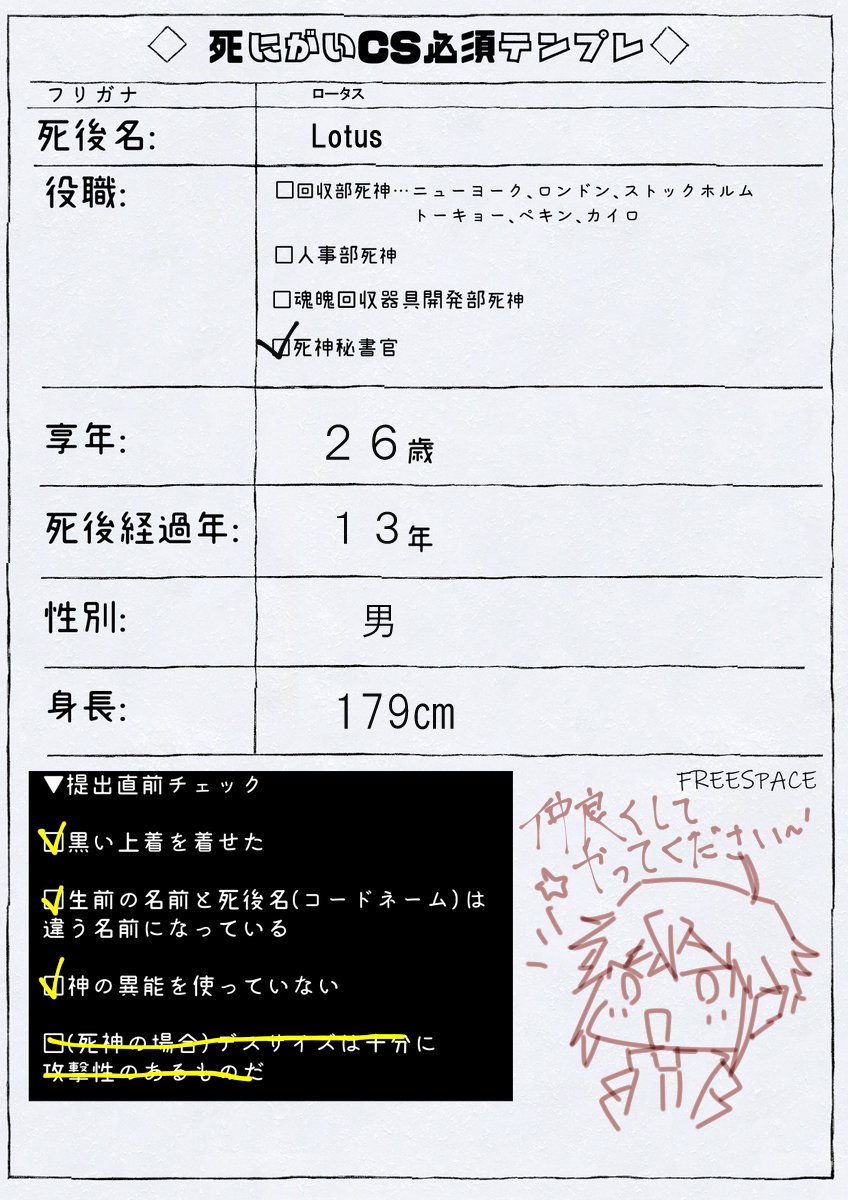 ◇ 死にがいCS必須テンプレ◇
フリガナ ロータス
死後名: Lotus
役職: □回収部死神…ニューヨーク、ロンドン、ストックホルム
トーキョー、ペキン、カイロ
□人事部死神
□魂魄回収器具開発部死神
□死神秘書官
享年: 26歳
死後経過年: 13年
性別: 男
身長: 179cm
▼提出直前チェック
□黒い上着を着せた
□生前の名前と死後名(コードネーム)は
違う名前になっている
□神の異能を使っていない
□(死神の場合)デスサイズは十分に
攻撃性のあるものだ
FREESPACE
仲良くして
やってください~!